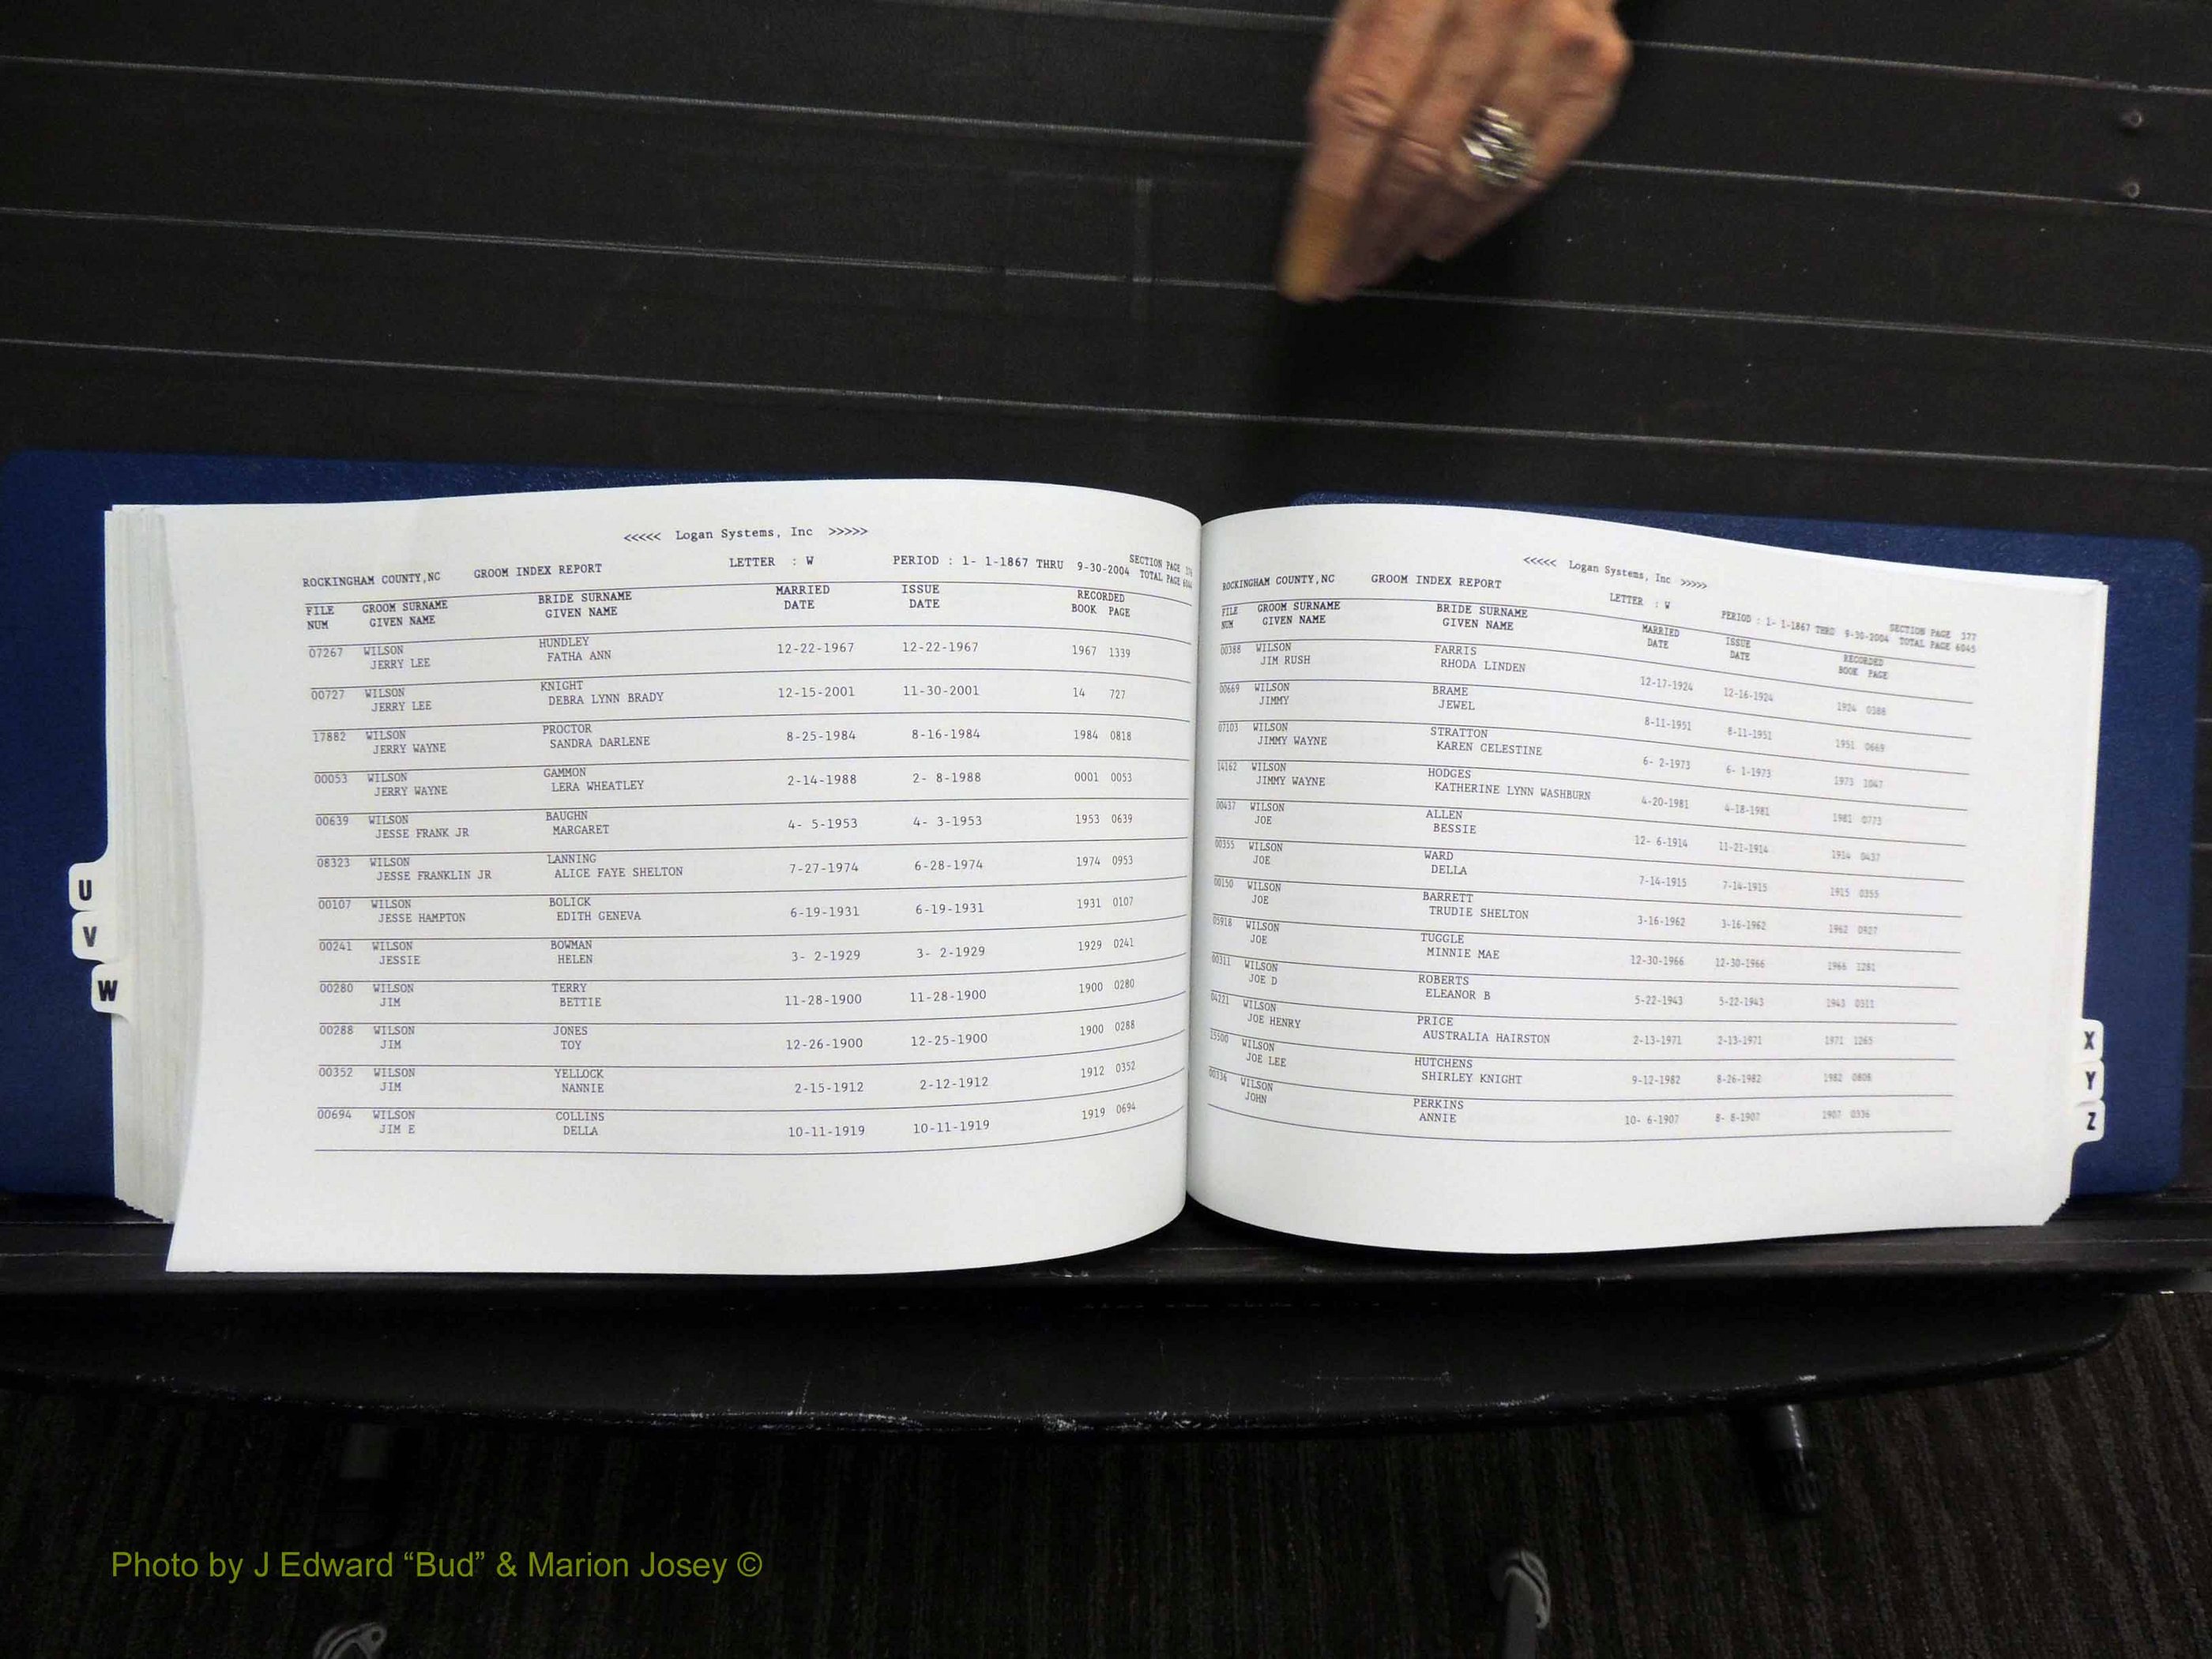 <<<<< Logan Systems, Inc >>>>>
ROCKINGHAM COUNTY,NC GROOM INDEX REPORT LETTER : W PERIOD : 1- 1-1867 THRU 9-30-2004 SECTION PAGE
TOTAL PAGE
FILE GROOM SURNAME BRIDE SURNAME MARRIED ISSUE RECORDED
NUM GIVEN NAME GIVEN NAME DATE DATE BOOK PAGE
07267 WILSON HUNDLEY 12-22-1967 12-22-1967 1967 1339
JERRY LEE FATHA ANN
00727 WILSON KNIGHT 12-15-2001 11-30-2001 14 727
JERRY LEE DEBRA LYNN BRADY
17882 WILSON PROCTOR 8-25-1984 8-16-1984 1984 0818
JERRY WAYNE SANDRA DARLENE
00053 WILSON GAMMON 2-14-1988 2- 8-1988 0001 0053
JERRY WAYNE LERA WHEATLEY
00639 WILSON BAUGHN 4- 5-1953 4- 3-1953 1953 0639
JESSE FRANK JR MARGARET
08323 WILSON LANNING 7-27-1974 6-28-1974 1974 0953
JESSE FRANKLIN JR ALICE FAYE SHELTON
00107 WILSON BOLICK 6-19-1931 6-19-1931 1931 0107
JESSE HAMPTON EDITH GENEVA
00241 WILSON BOWMAN 3- 2-1929 3- 2-1929 1929 0241
JESSIE HELEN
00280 WILSON TERRY 11-28-1900 11-28-1900 1900 0280
JIM BETTIE
00288 WILSON JONES 12-26-1900 12-25-1900 1900 0288
JIM TOY
00352 WILSON YELLOCK 2-15-1912 2-12-1912 1912 0352
JIM NANNIE
00694 WILSON COLLINS 10-11-1919 10-11-1919 1919 0694
JIM E DELLA
U
V
W
<<<<< Logan Systems, Inc >>>>>
ROCKINGHAM COUNTY,NC GROOM INDEX REPORT LETTER : W PERIOD : 1- 1-1867 THRU 9-30-2004 SECTION PAGE 377
TOTAL PAGE 6045
FILE GROOM SURNAME BRIDE SURNAME MARRIED ISSUE RECORDED
NUM GIVEN NAME GIVEN NAME DATE DATE BOOK PAGE
00388 WILSON FARRIS 12-17-1924 12-16-1924 1924 0388
JIM RUSH RHODA LINDEN
00669 WILSON BRAME 8-11-1951 8-11-1951 1951 0669
JIMMY JEWEL
07103 WILSON STRATTON 6- 2-1973 6- 1-1973 1973 1047
JIMMY WAYNE KAREN CELESTINE
14162 WILSON HODGES 4-20-1981 4-18-1981 1981 0773
JIMMY WAYNE KATHERINE LYNN WASHBURN
00437 WILSON ALLEN 12- 6-1914 11-21-1914 1914 0437
JOE BESSIE
00355 WILSON WARD 7-14-1915 7-14-1915 1915 0355
JOE DELLA
00150 WILSON BARRETT 3-16-1962 3-16-1962 1962 0927
JOE TRUDIE SHELTON
05918 WILSON TUGGLE 12-30-1966 12-30-1966 1966 1281
JOE MINNIE MAE
00311 WILSON ROBERTS 5-22-1943 5-22-1943 1943 0311
JOE D ELEANOR B
04221 WILSON PRICE 2-13-1971 2-13-1971 1971 1265
JOE HENRY AUSTRALIA HAIRSTON
15500 WILSON HUTCHENS 9-12-1982 8-26-1982 1982 0808
JOE LEE SHIRLEY KNIGHT
00336 WILSON PERKINS 10- 6-1907 8- 8-1907 1907 0336
JOHN ANNIE
X
Y
Z
Photo by J Edward “Bud” & Marion Josey ©